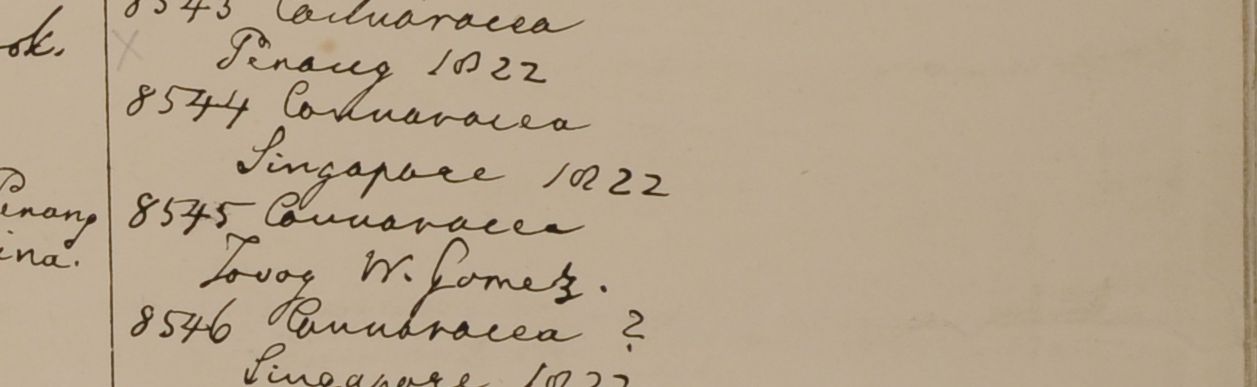 8543 Connaracea
Penang 1822
8544 Connaracea
Singapore 1822
8545 Connaracea
Tovoy W. Gomez.
8546 Connaracea ?
Singapore 1822
ok.
Penang
ina.